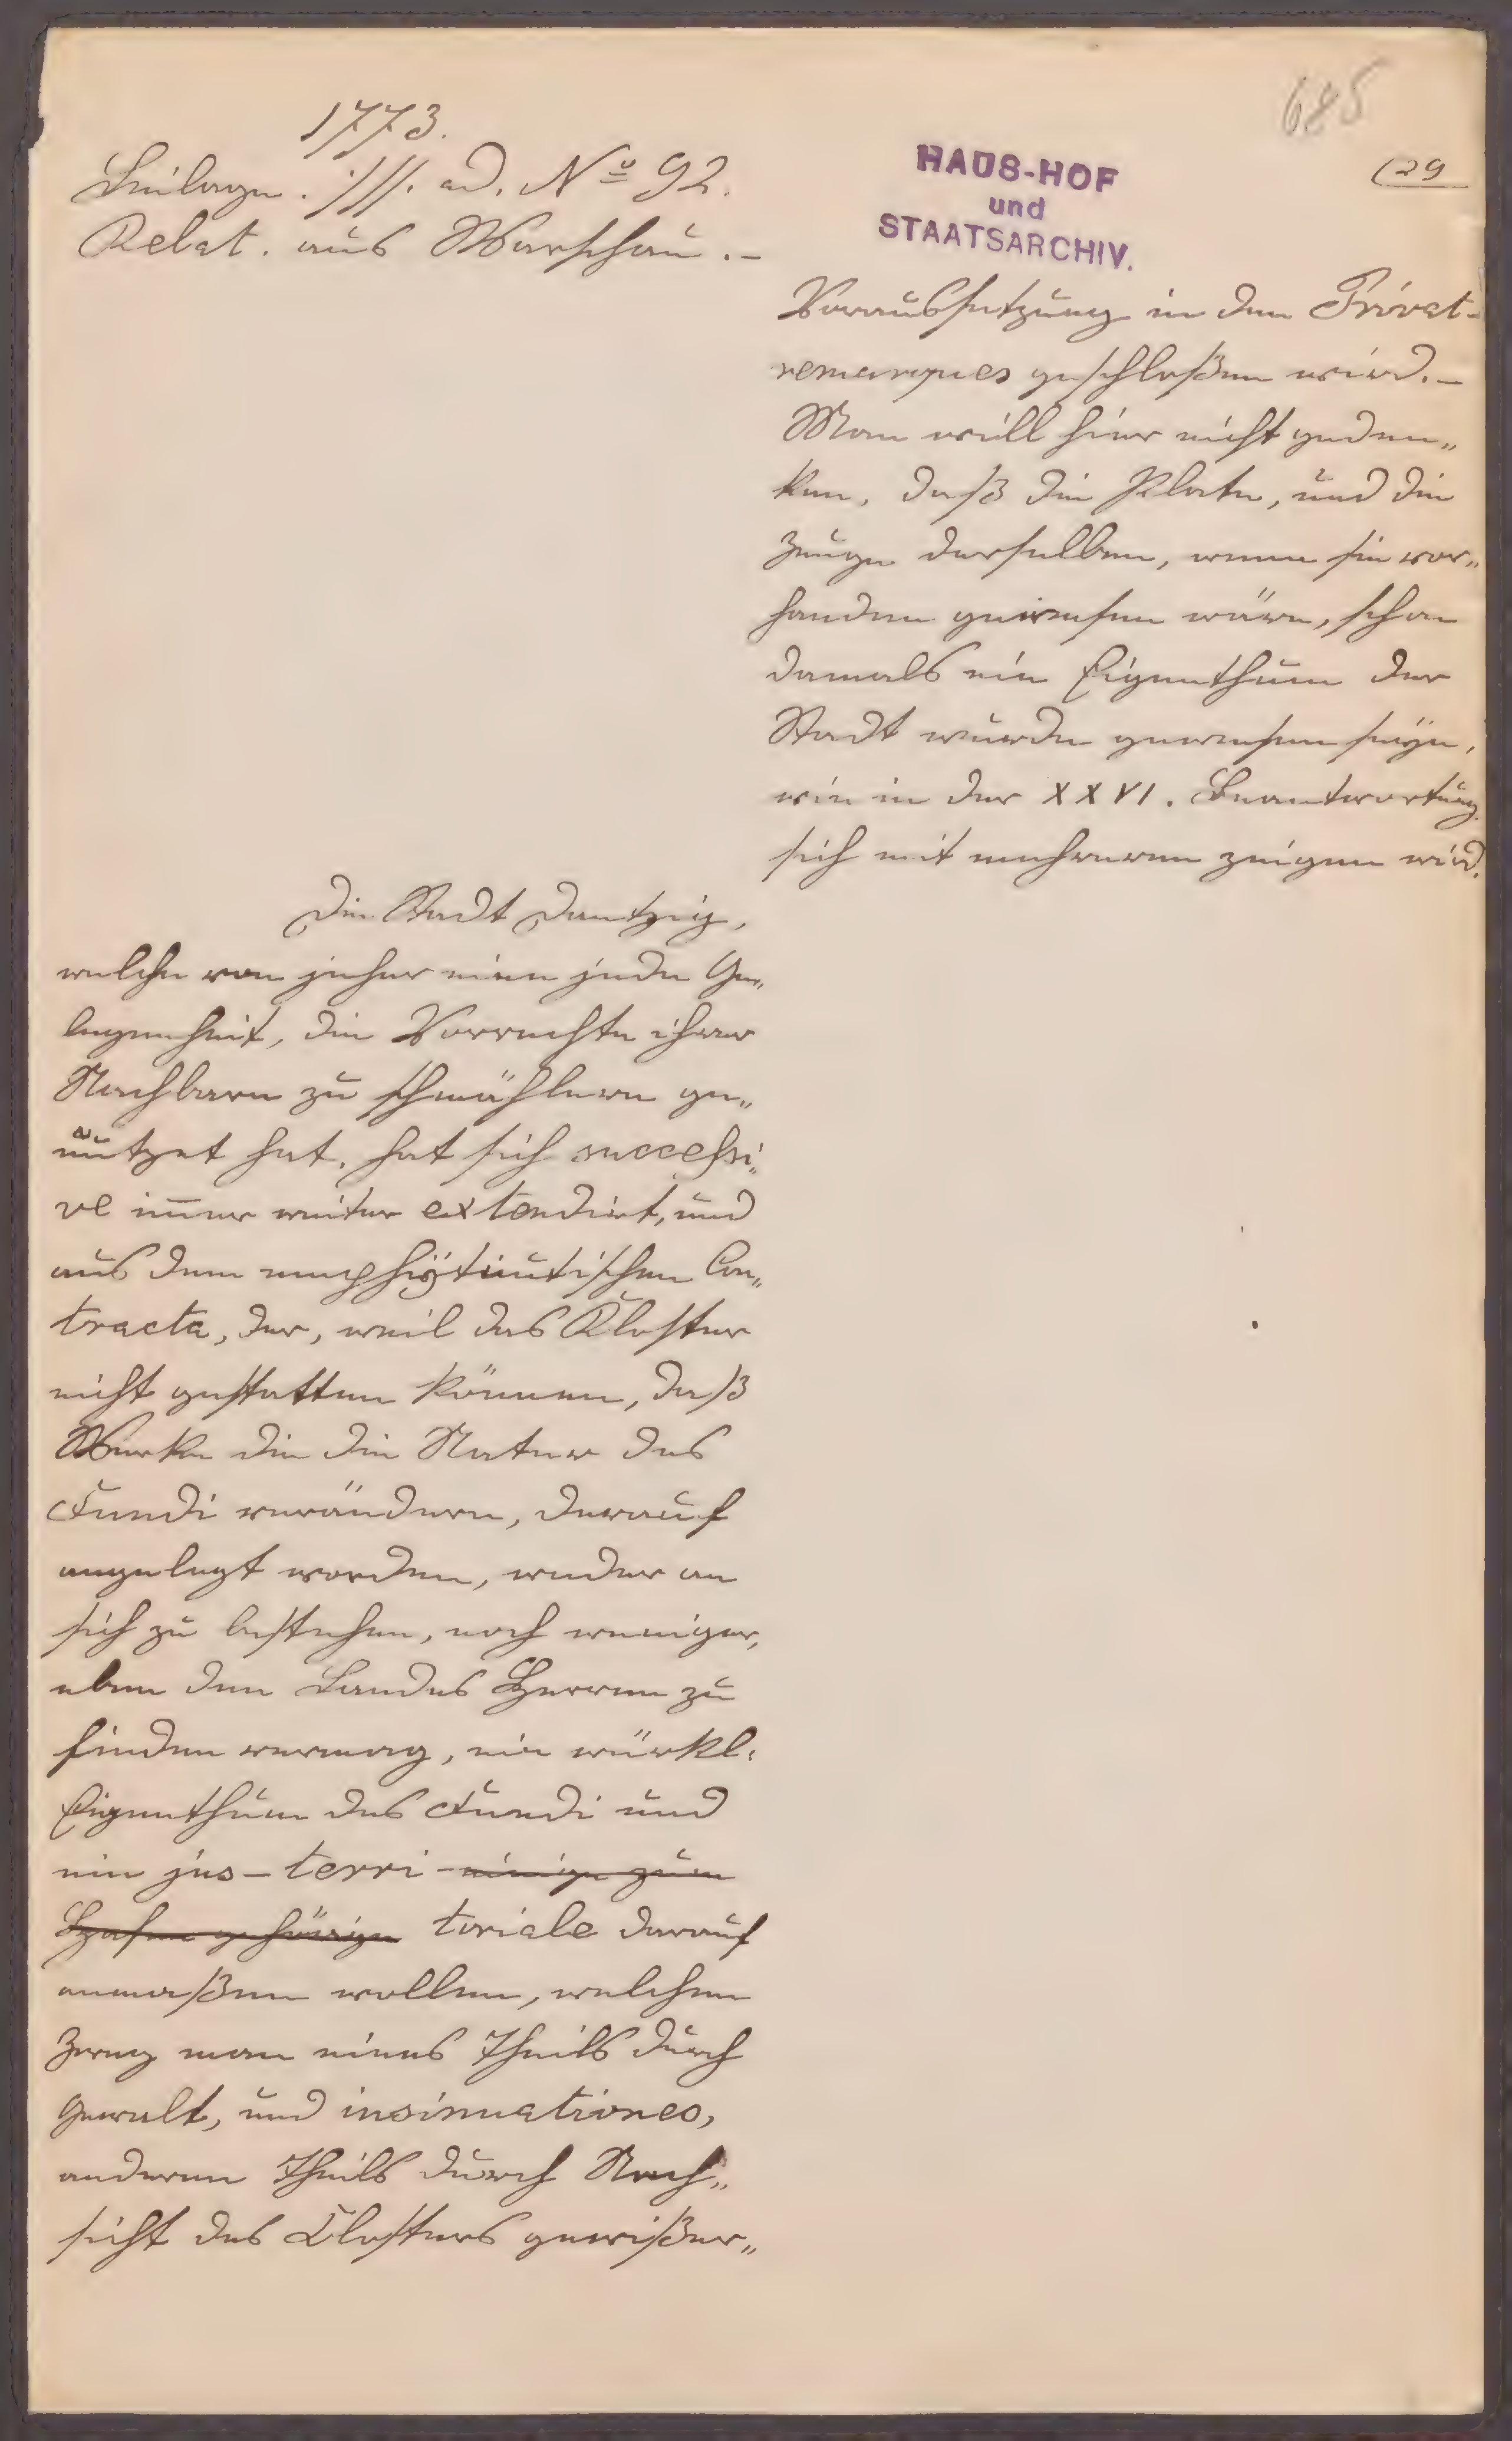 1773.
Beilage ·/// ad. Nº 92.
Relat. aus Warschau.-
685
(29
HAUS-HOF
und
STAATSARCHIV.
Voraussetzung in den Privat-
remarques geschloßen wird.-
Man will hier nicht geden„
ken, daß die Plate, und die
Zeuge derselben, wenn sie vor„
handen gewesen wäre, schon
damals ein Eigenthum der
Stadt wurde gewesen seÿn,
wie in der XXVI. Beantwortung
sich mit mehreren zeigen wird.
Die Stadt Dantzig,
welche von jeher eine jede Ge„
legenheit, die Vorrechte ihrer
Nachbarn zu schmählern ge„
nutzet hat, hat sich successi„
ve immer weiter extendirt, und
aus dem emphÿteutischen Con„
tracte, der, weil das Kloster
nicht gestatten können, daß
Werke die die Natur des
Fundi verändern, darauf
angelegt worden, weder an
sich zu bestehen, noch weniger,
eben den Landes Herren zu
finden vermag, ein würkl:
Eigenthum des Fundi und
ein jus-terri- einige zum
Hafen gehörige toriale darauf
anmaßen wollen, welchen
Zweg man eines Theils durch
Gewalt, und insinuationes,
anderen Theils durch Nach„
sicht des Closters gewißer„